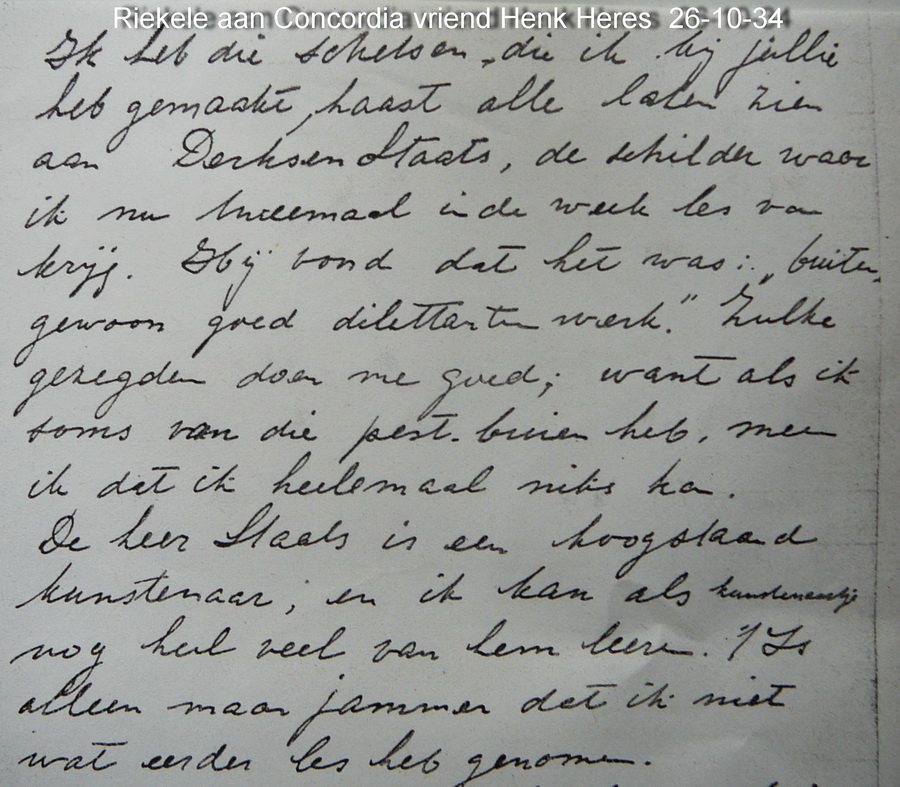 Riekele aan Concordia vriend Henk Heres 26-10-34
Ik heb die schetsen, die ik bij jullie
heb gemaakt, haast alle laten zien
aan Derksen Staats, de schilder waar
ik nu tweemaal in de week les van
krijg. Hij vond dat het was: „buiten-
gewoon goed dilettanten werk." Zulke
gezegden doen me goed; want als ik
soms van die pest-buien heb, meen
ik dat ik heelemaal niks kan.
De heer Staats is een hoogstaand
kunstenaar; en ik kan als kunstenaartje
nog heel veel van hem leeren. 't Is
alleen maar jammer dat ik niet
wat eerder les heb genomen.